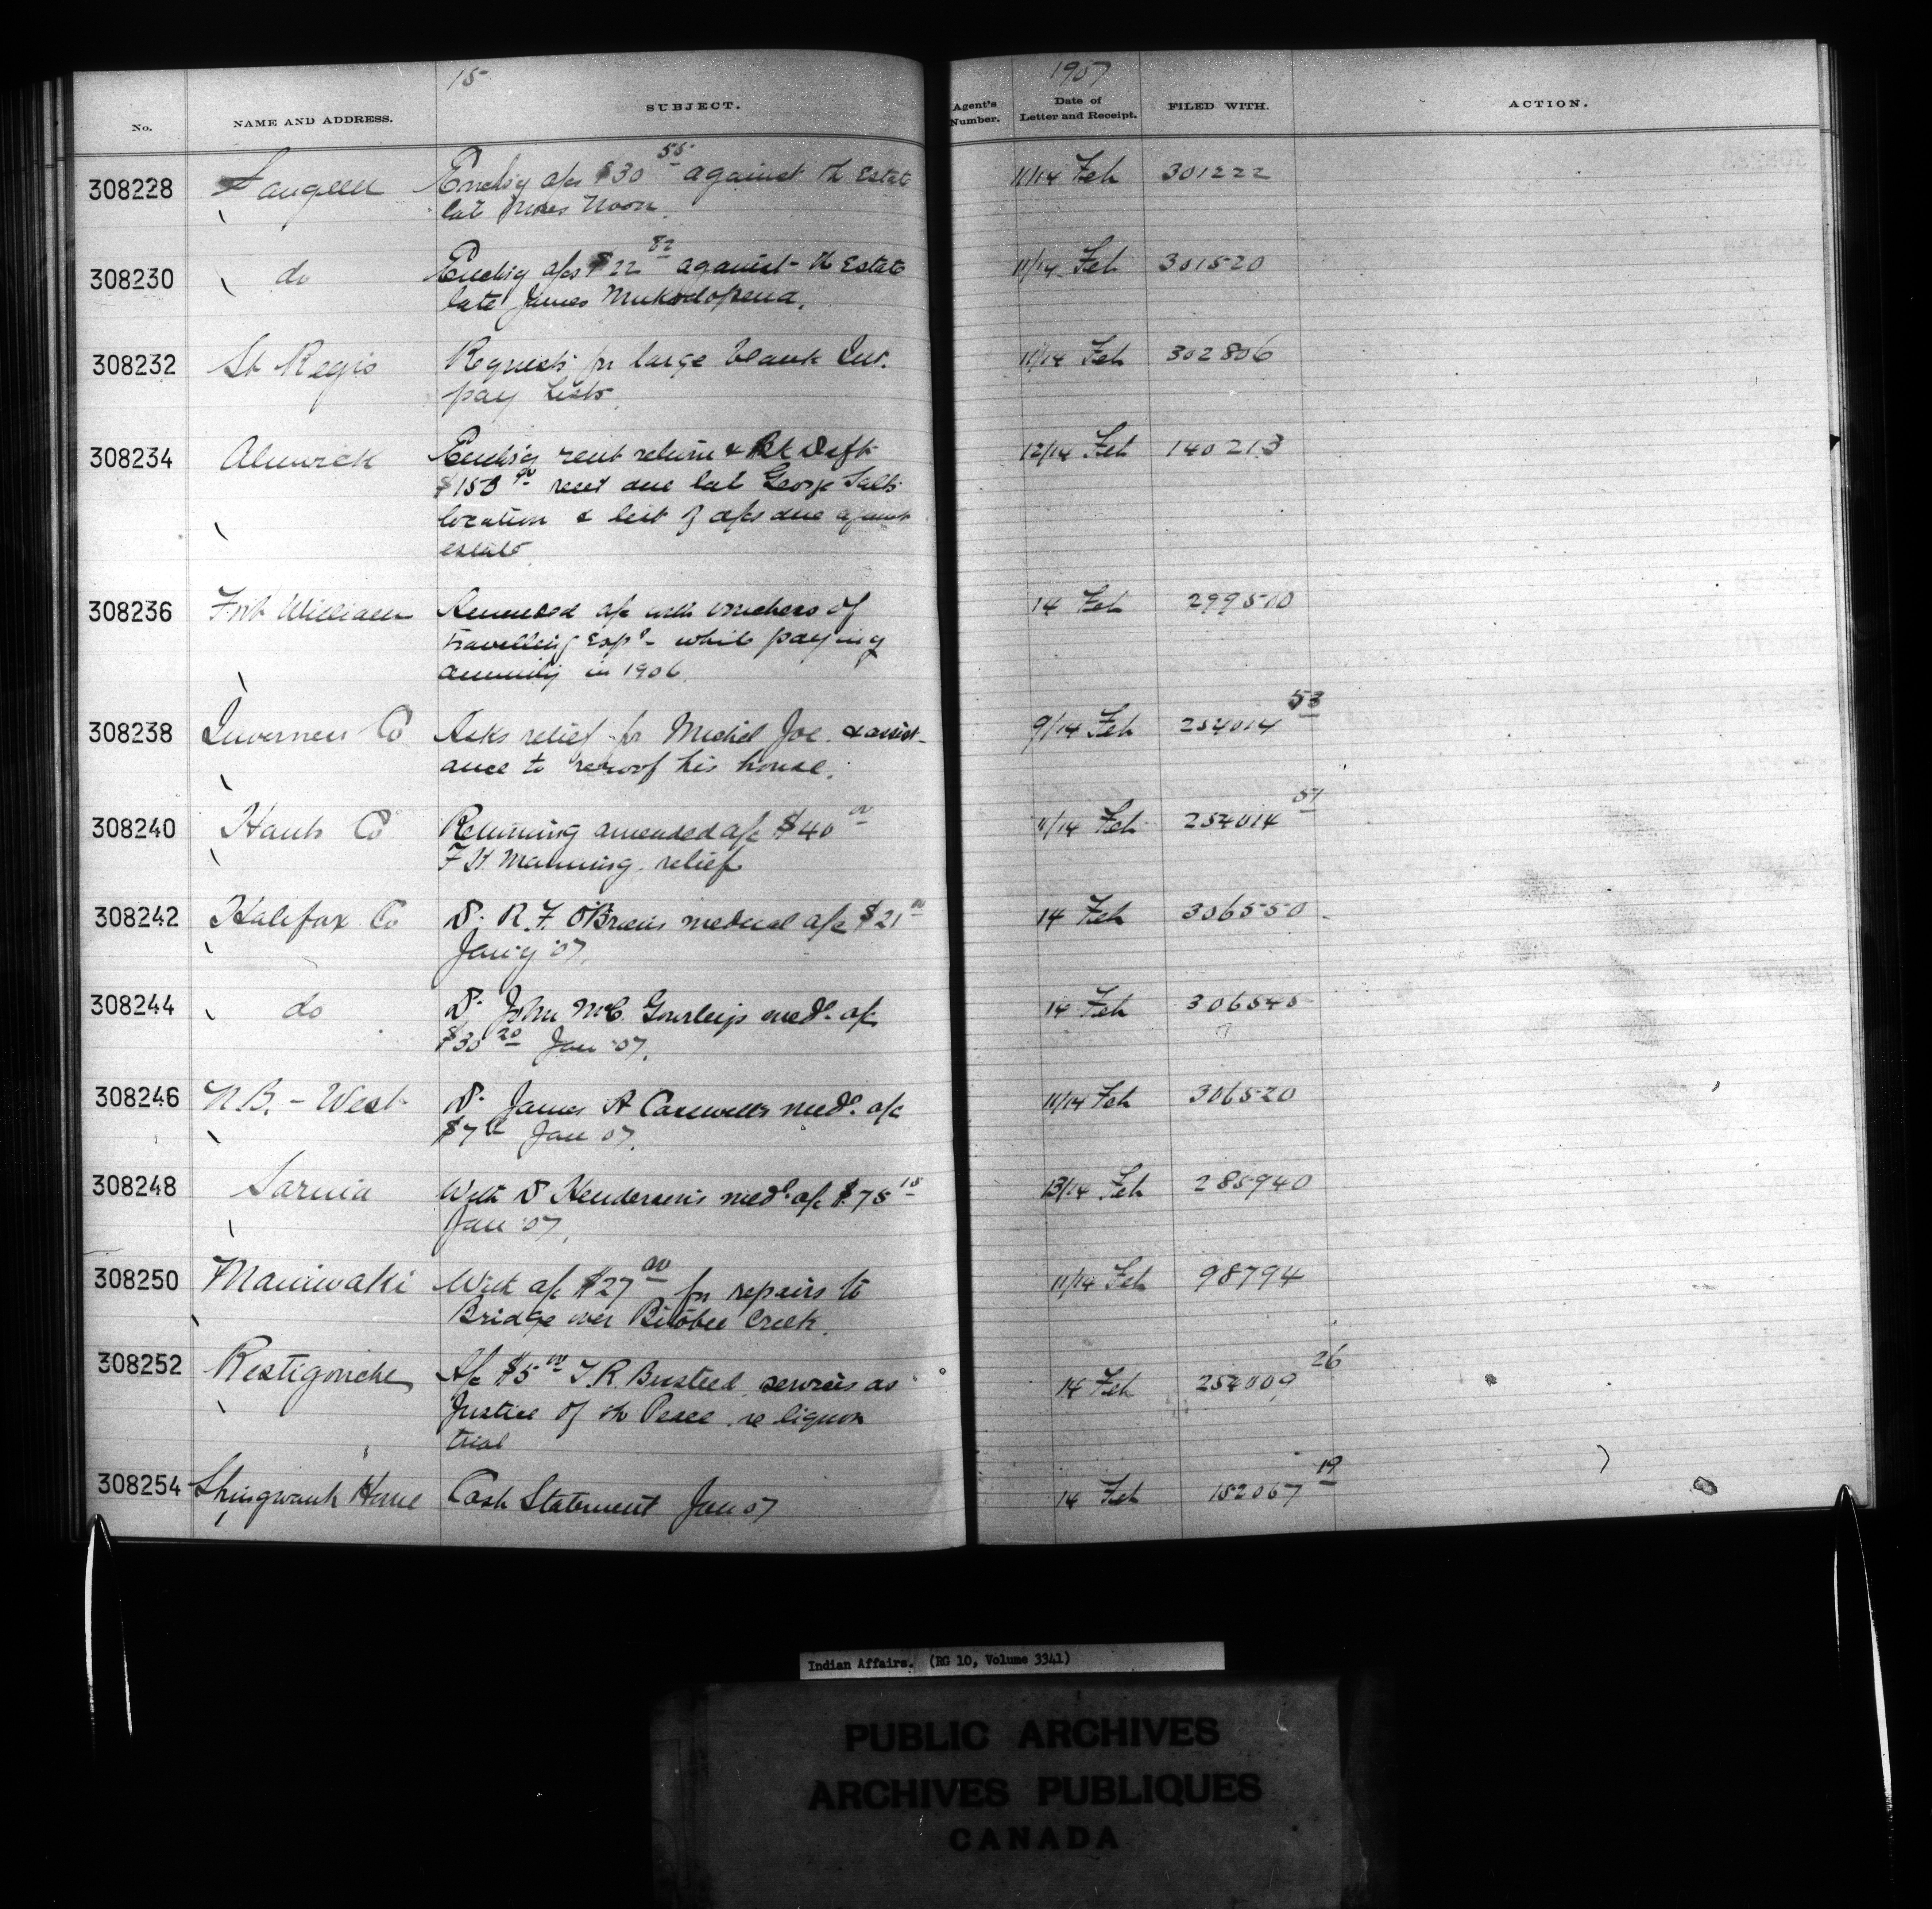 15
1907
No. NAME AND ADDRESS. SUBJECT. Agent's Number. Date of Letter and Receipt. FILED WITH. ACTION.
308228 Saugeen Enclsg a/cs $30 55 against th Estate 11/14 Feb 301222
late Moses Noon.
308230 do Enclsg a/cs $22 82 against th Estate 11/14 Feb 301520
late James
308232 St Regis Requests for large blank Int. 11/14 Feb 302806
pay Lists
308234 Alnwick Enclsg rent return & Bk Dft 12/14 Feb 140213
$150 00 rent due late George Salts
location & list of a/cs due against
estate
308236 Fort William Amended a/c with vouchers of 14 Feb 299500
travelling exps while paying
annuity in 1906.
308238 Inverness Co Asks relief for Michel Joe & assist- 9/14 Feb 254014 53
ance to reroof his house.
308240 Hants Co Returning amended a/c $40 00 11/14 Feb 254014 51
F H Manning. relief
308242 Halifax Co Dr R. F. O'Briens medical a/c $21 00 14 Feb 306550
Jan'y '07.
308244 do Dr John McC. Gourley's med. a/c 14 Feb 306545
$30 20 Jan '07.
308246 N.B. - West Dr James A Caswells med. a/c 11/14 Feb 306520
$7 Jan 07.
308248 Sarnia With Dr Henderson's med. a/c $75 15 13/14 Feb 285940
Jan '07.
308250 Maniwaki With a/c $27 00 for repairs to 11/14 Feb 98794
Bridge over Bitobee Creek.
308252 Restigouche A/c $5 00 T. R. Busteed services as 14 Feb 254009 26
Justice of th Peace re liquor
trial
308254 Shingwauk Home Cash Statement Jan 07 14 Feb 152067 19
Indian Affairs. (RG 10, Volume 3341)
PUBLIC ARCHIVES
ARCHIVES PUBLIQUES
CANADA